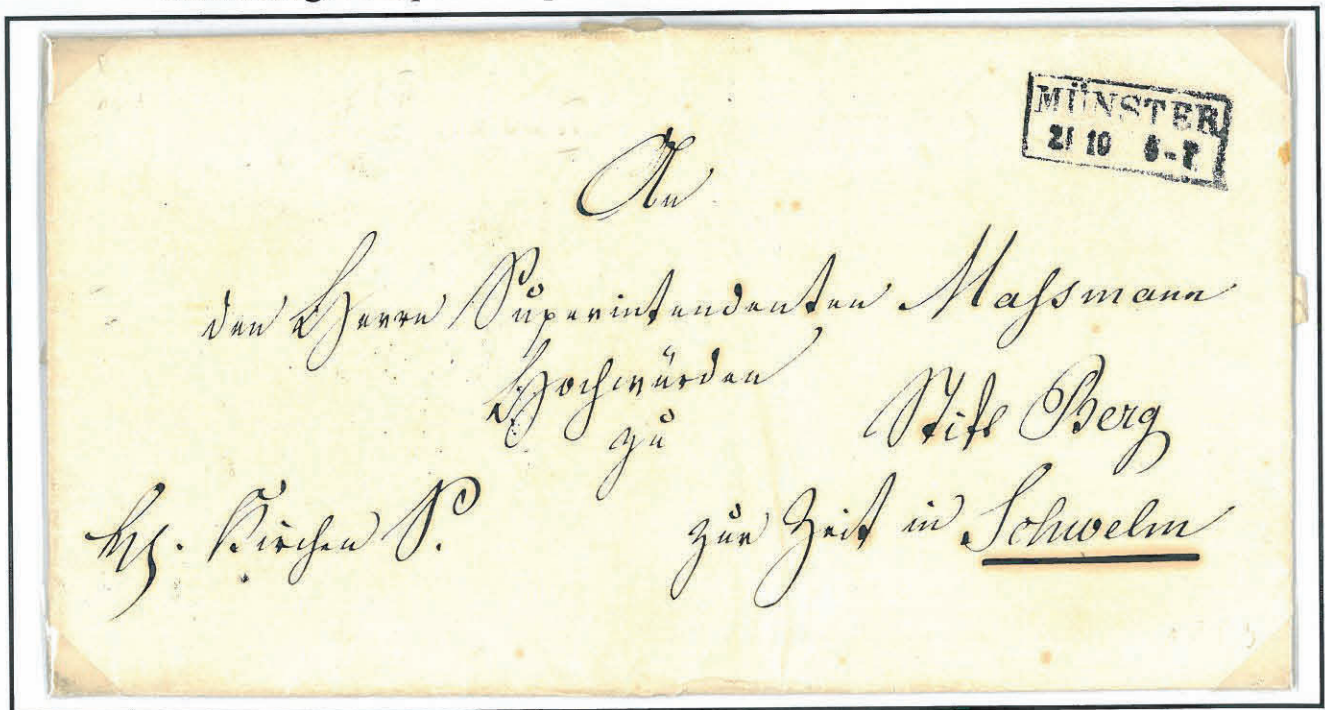 MÜNSTER
21 10 6-7
An
den Herrn Superintendenten Maßmann
Hochwürden
zu Stift Berg
Kirchen S. zur Zeit in Schwelm